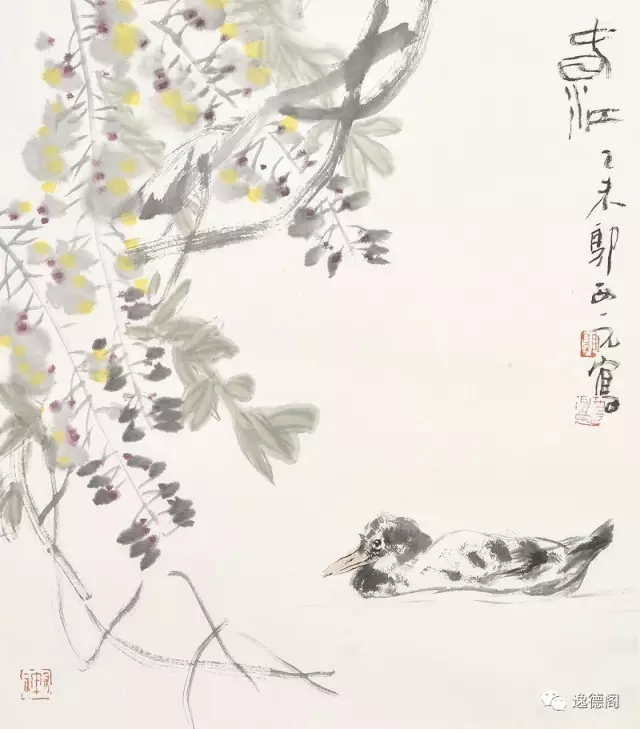 春江
乙未郭西元寫
逸德阁